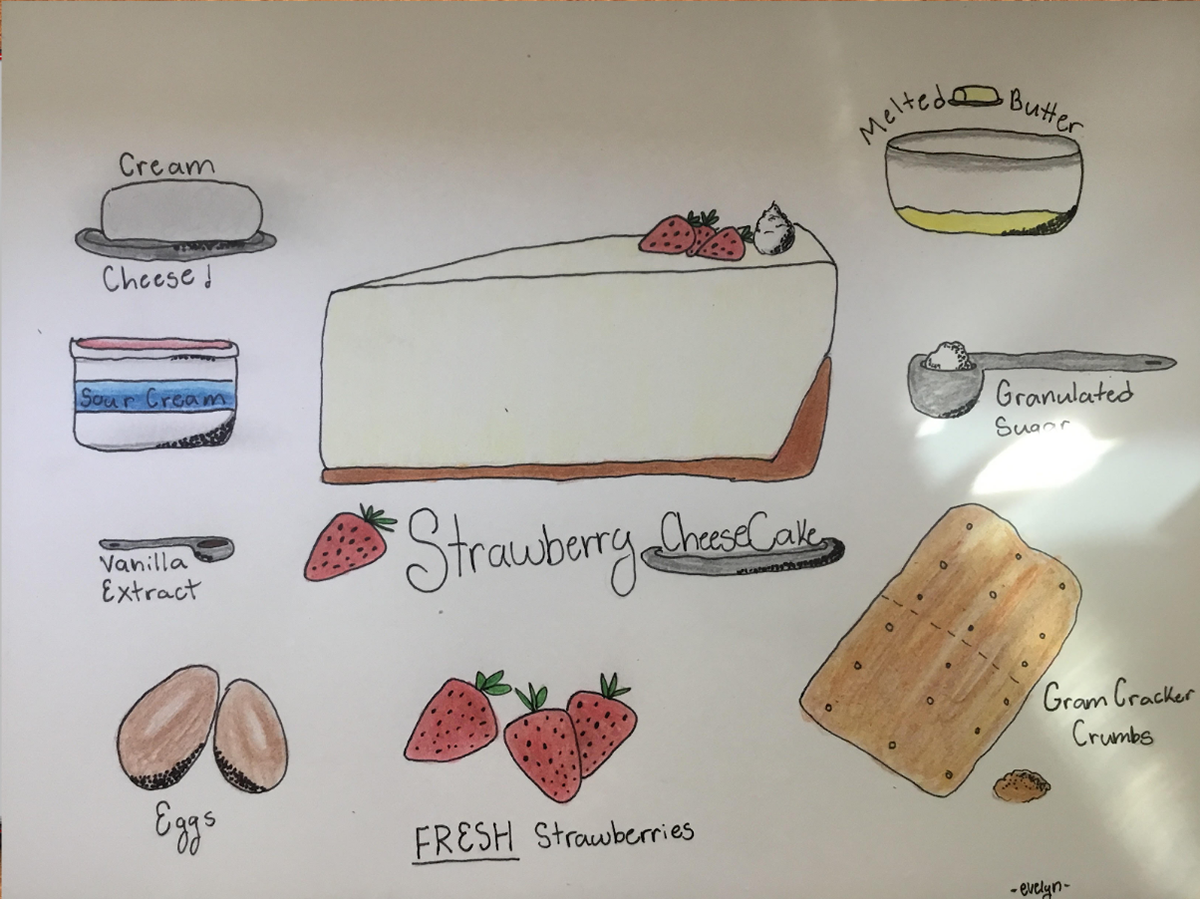 Melted Butter
Cream
Cheese!
Sour Cream
Granulated
Sugar
Strawberry CheeseCake
Vanilla
Extract
Gram Cracker
Crumbs
Eggs
FRESH Strawberries
-evelyn-